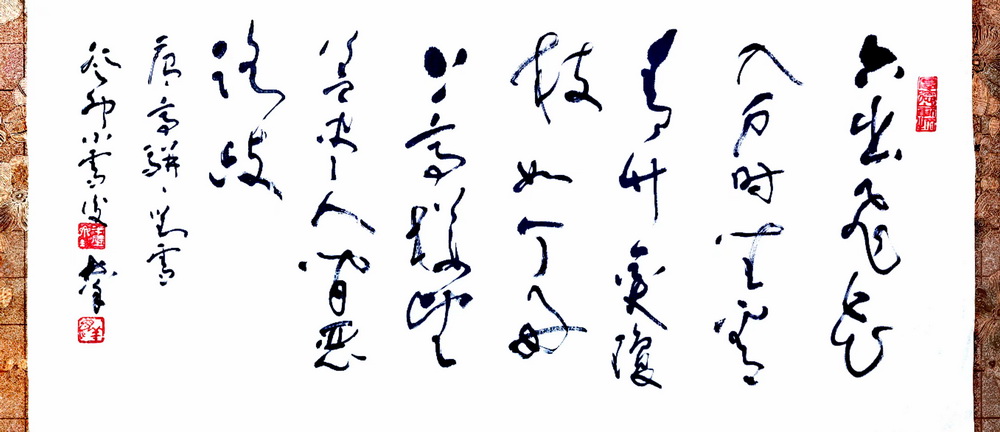 六出飞花
入户时坐看
青竹变琼
枝如今好
上高楼望
盖尽人间恶
路歧
唐高骈对雪
小雪